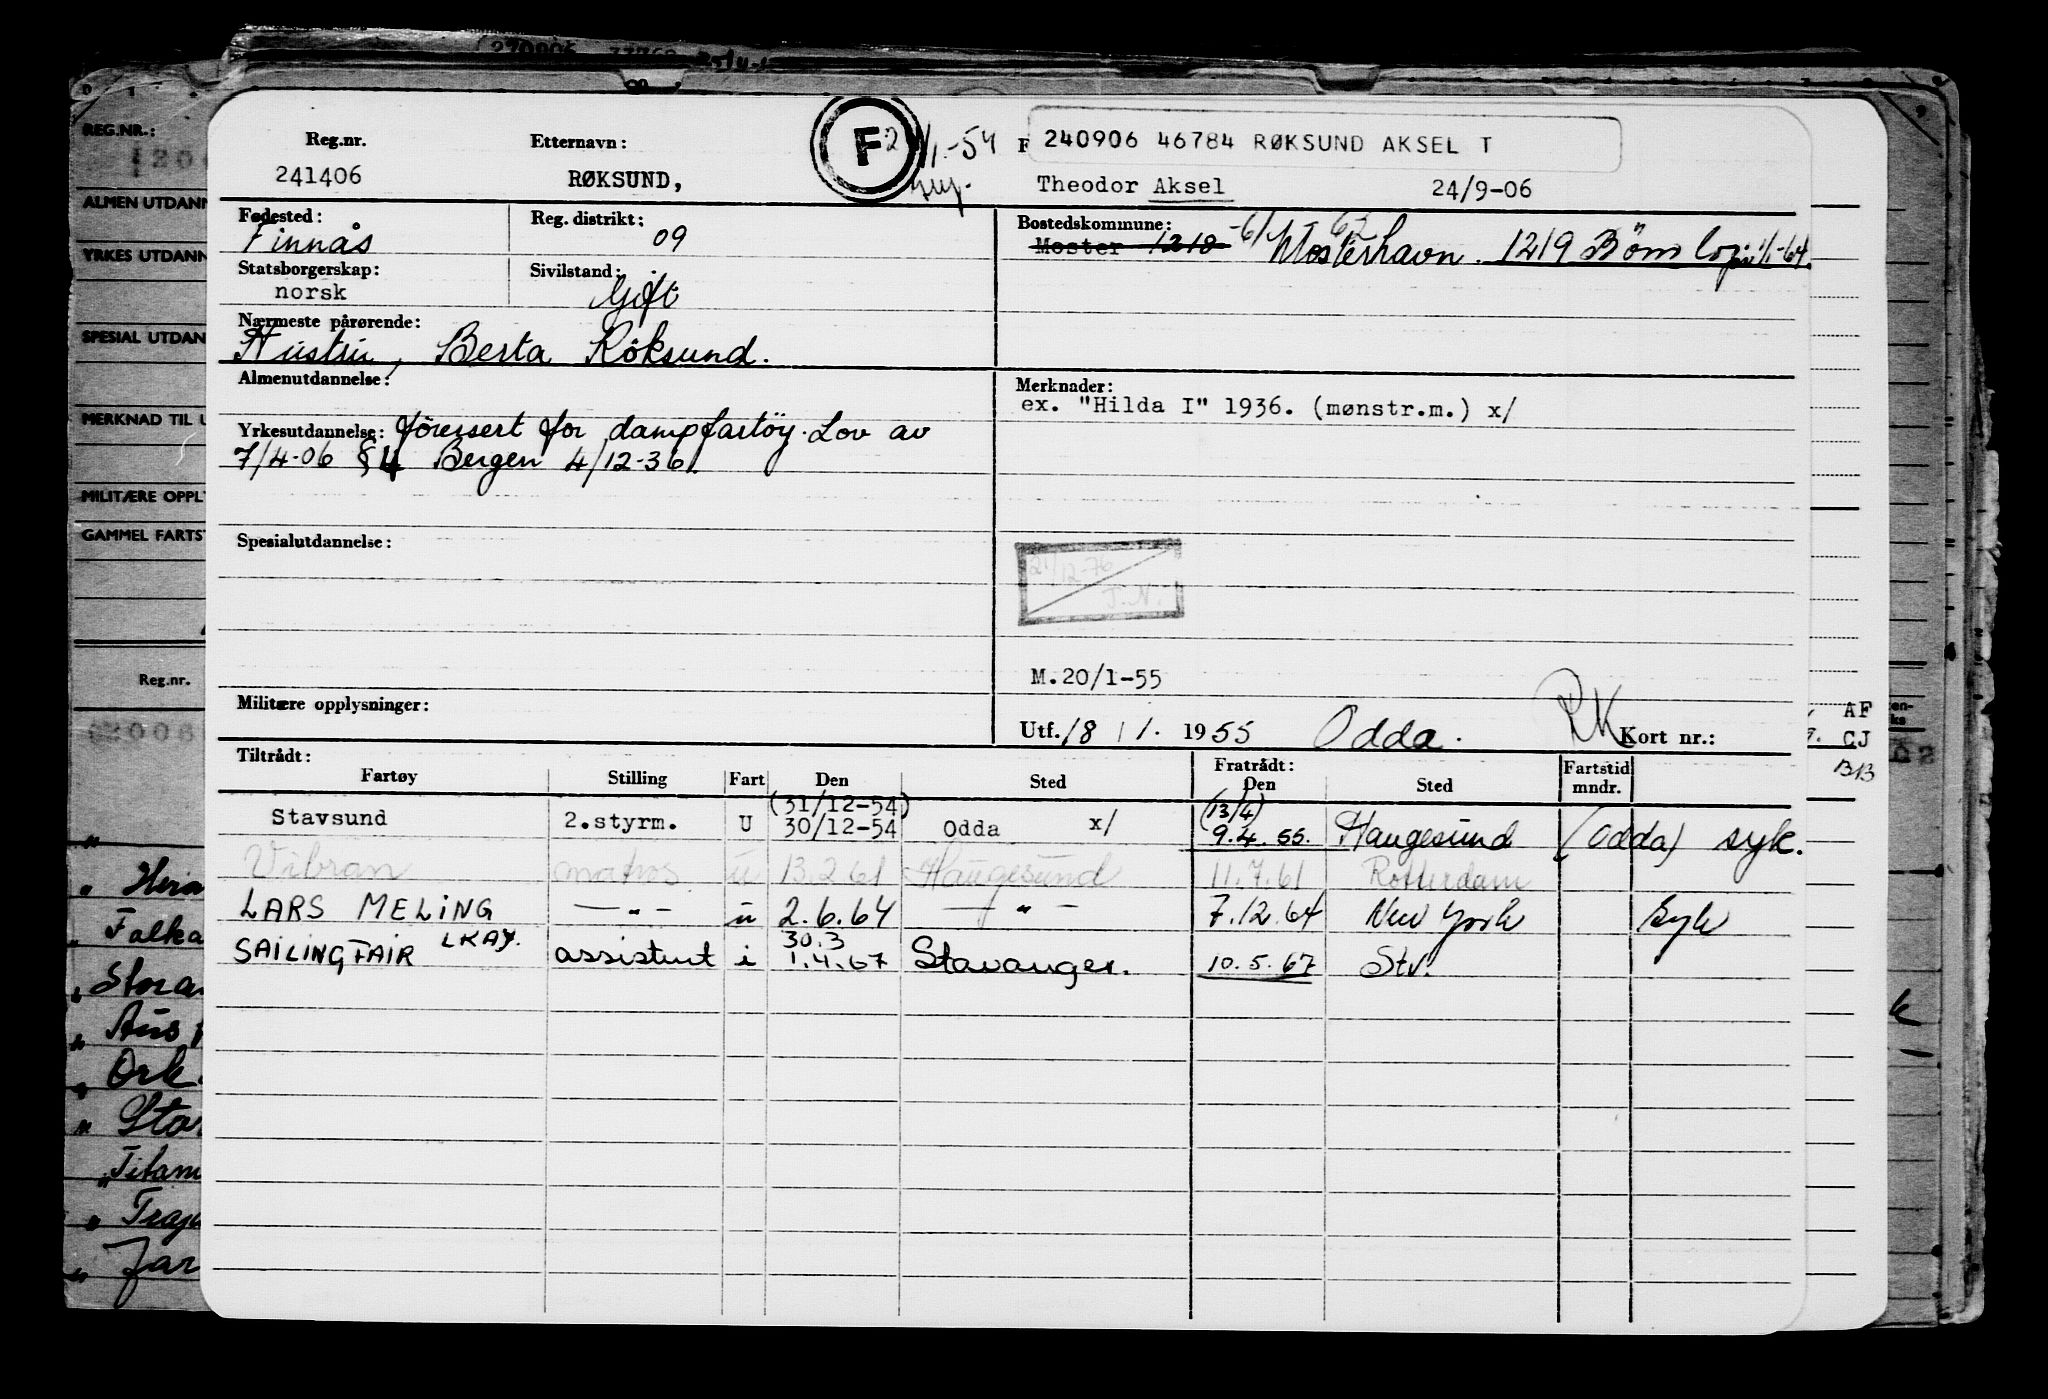 REG.NR.:
ALMEN UTDANN
YRKES UTDANN
SPESIAL UTDAN
MERKNAD TIL U
MILITÆRE OPPL
GAMMEL FARTS
Reg.nr.
Falka
Aus
Ork
Titan
Jar
Reg.nr. Etternavn: F 2 1/1-54 F 240906 46784 RØKSUND AKSEL T
241406 RØKSUND, Theodor Aksel 24/9-06
Fødested: Reg. distrikt: Bostedskommune: -61 62
Finnås 09 Moster 1218 Mosterhavn. 1219 Bømlo 1/1-64
Statsborgerskap: Sivilstand:
norsk Gift
Nærmeste pårørende:
Hustru, Berta Röksund.
Almenutdannelse: Merknader:
ex. "Hilda I" 1936. (mønstr.m.) x/
Yrkesutdannelse: förersert for dampfartöy. Lov av
7/4-06 §4 Bergen 4/12-36.
Spesialutdannelse:
21/12-76
J.N.
M.20/1-55
Militære opplysninger:
Utf. 18/1. 1955 Odda. RK Kort nr.:
AF
CJ
BB
Tiltrådt: Fratrådt:
Fartøy Stilling Fart Den Sted Den Sted Fartstid mndr.
(31/12-54) (13/4)
Stavsund 2.styrm. U 30/12-54 Odda x/ 9.4.55. Haugesund (Odda) syk.
Vibran matros u 13.2.61 Haugesund 11.7.61 Rotterdam
LARS MELING — " — u 2.6.64 — " — 7.12.64 New York syk
30.3
SAILINGFAIR LKAY. assistent i 1.4.67 Stavanger. 10.5.67 Stv.